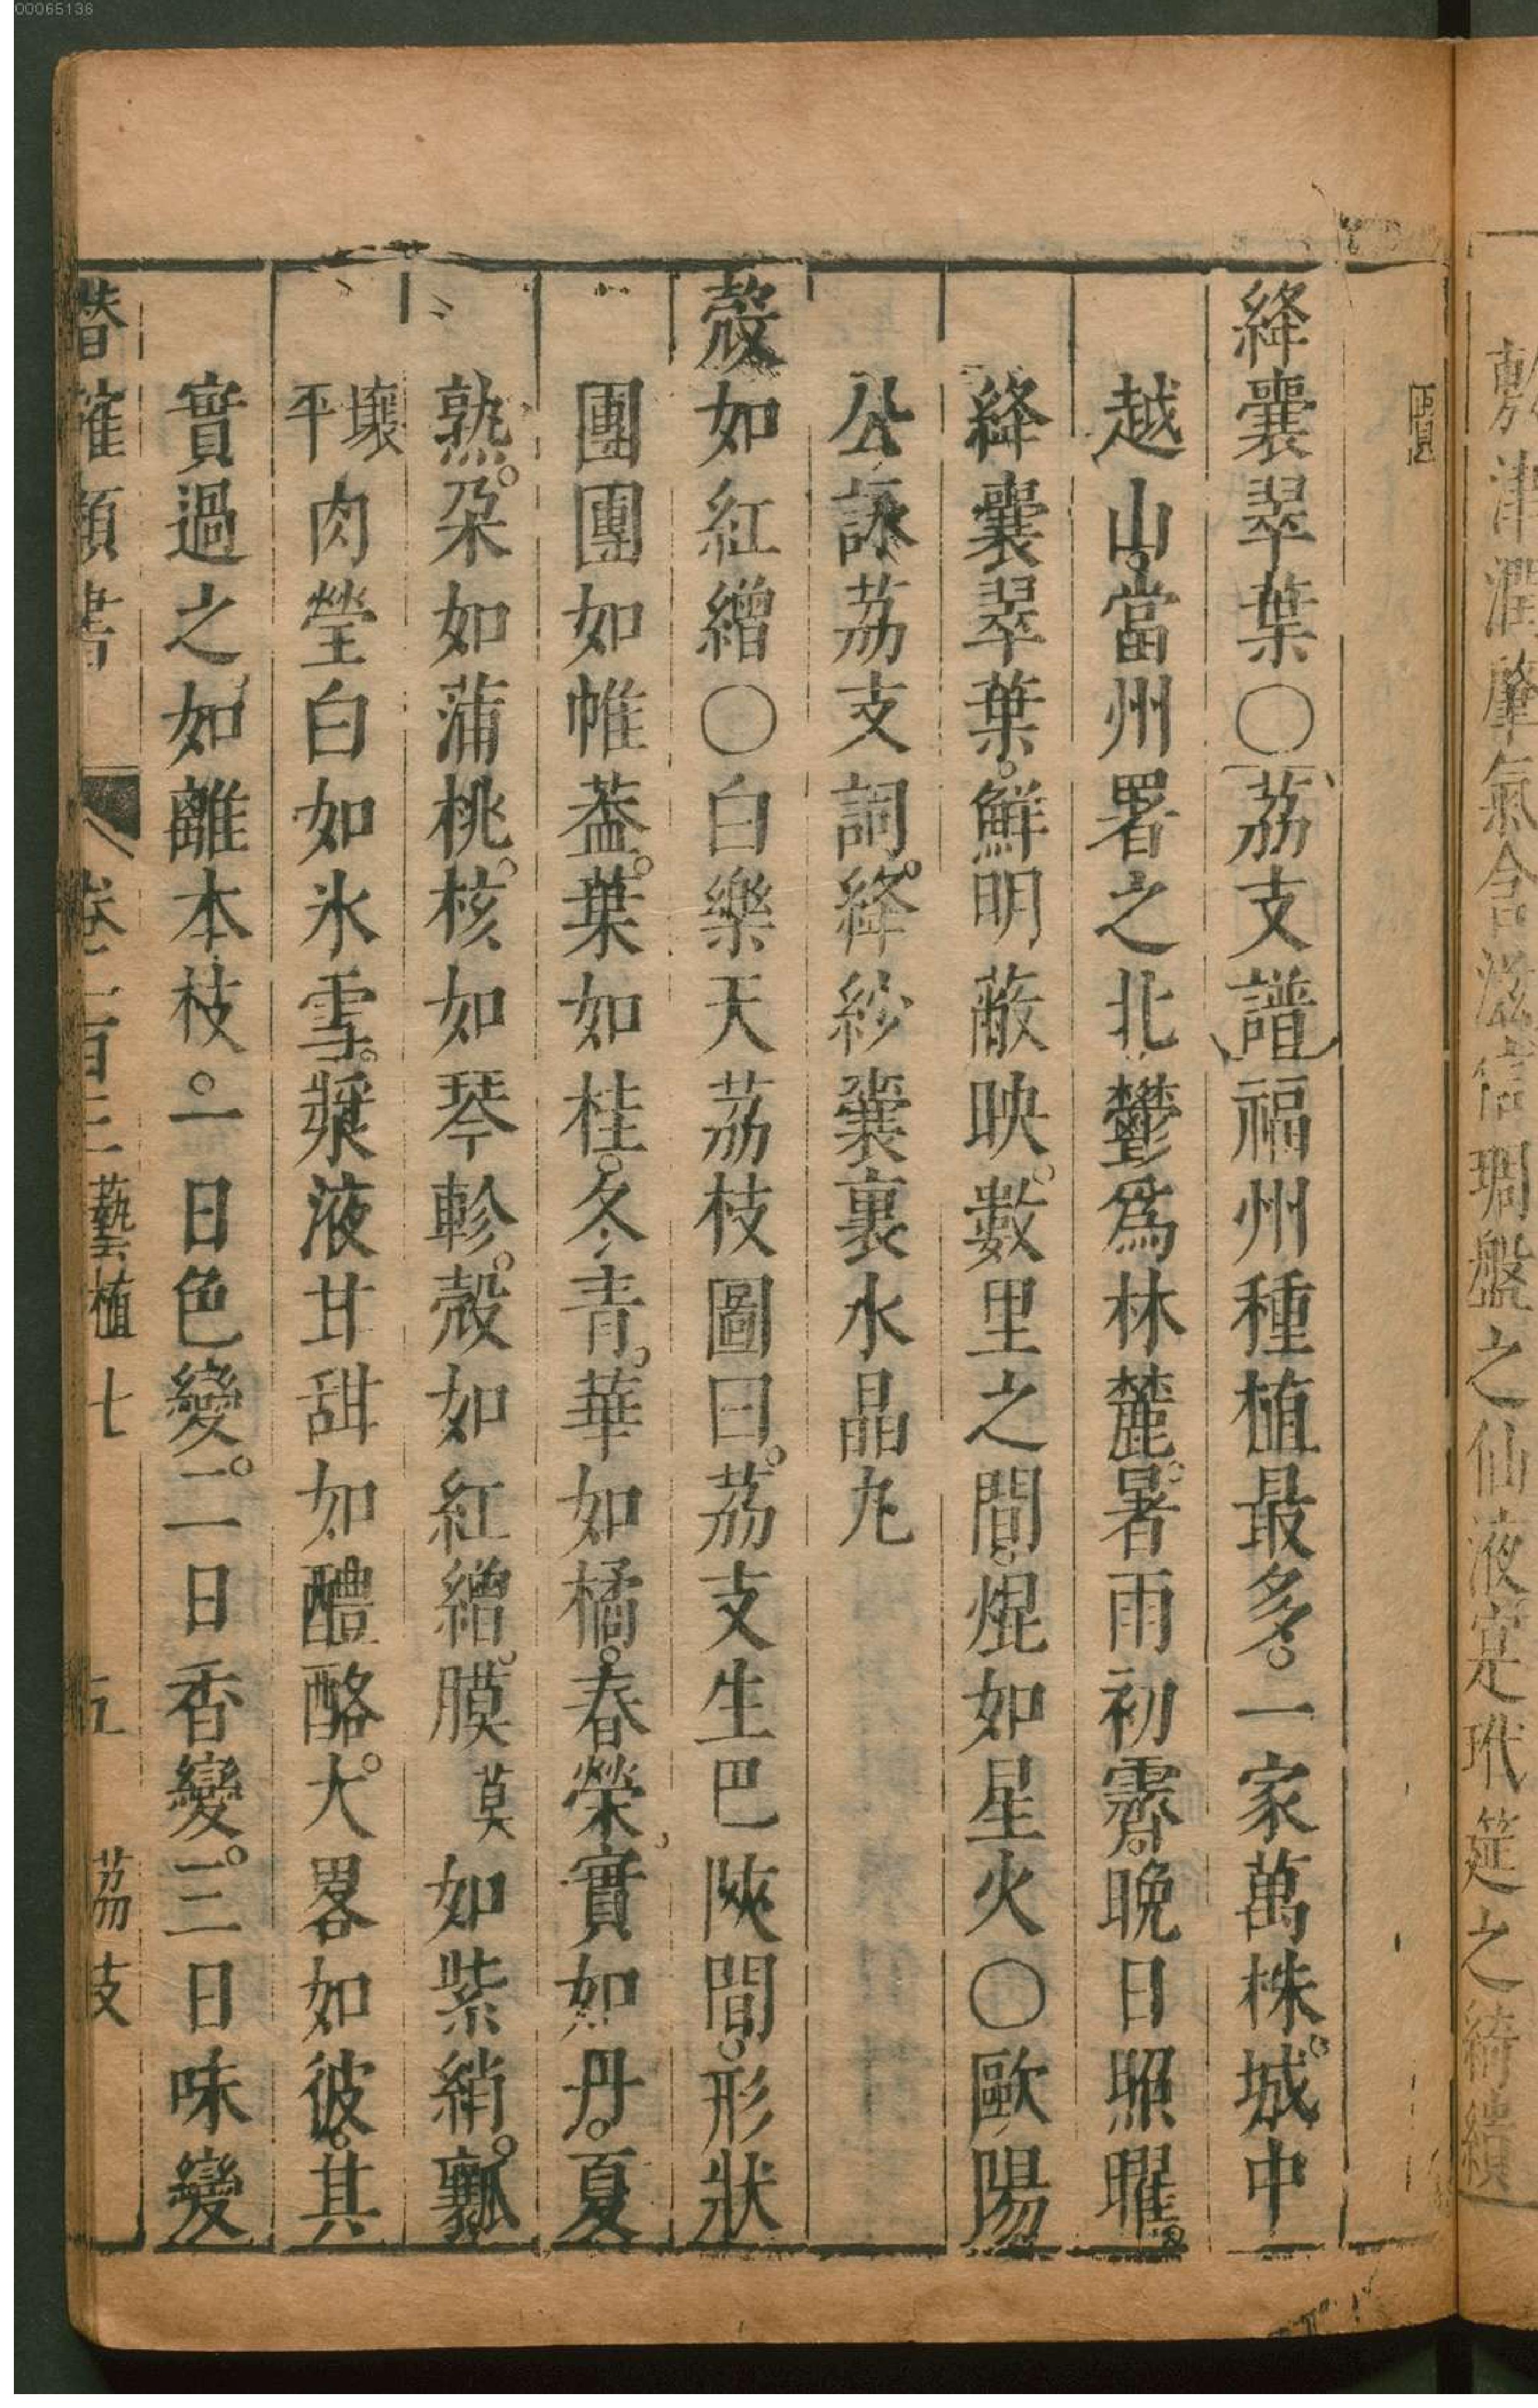 00065136
敷津潤肇氣含滋信琱盤之仙液寔玳筵之綺繢
絳囊翠葉〇荔支譜福州種植最多。一家萬株。城中
越山。當州署之北鬱爲林麓。暑雨初霽。晚日照曜。
絳囊翠葉。鮮明蔽映。數里之間。焜如星火〇歐陽
公詠荔支詞。絳紗囊裏水晶丸
殼如紅繒〇白樂天荔枝圖曰。荔支生巴陝間。形狀
團團如帷葢。葉如桂。冬青。華如橘。春榮。實如丹。夏
熟。朶如蒲桃。核如琴軫。殼如紅繒。膜莫如紫綃。瓤
壤平肉瑩白如氷雪。漿液甘甜如醴酪。大畧如彼。其
實過之如離本枝。一日色變。二日香變。三日味變
潛確類書 卷一百三藝植七 五 荔枝